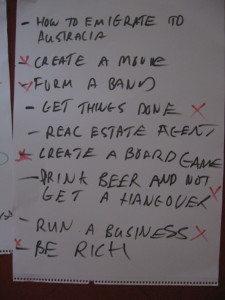 - HOW TO EMIGRATE TO
AUSTRALIA
- CREATE A MOVIE
- FORM A BAND
- GET THINGS DONE X
- REAL ESTATE AGENT
- CREATE A BOARD GAME
- DRINK BEER AND NOT
GET A HANGOVER X
- RUN A BUSINESS X
- BE RICH